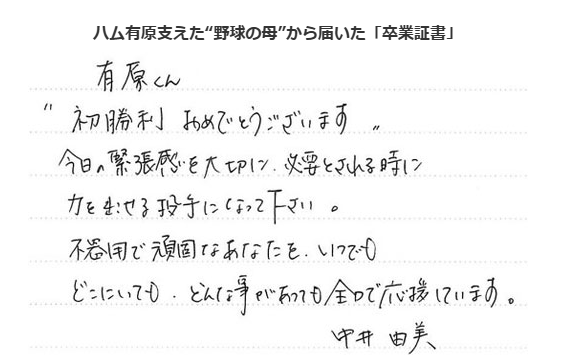 ハム有原支えた“野球の母”から届いた「卒業証書」
有原くん
〝初勝利 おめでとうございます〟
今日の緊張感を大切に、必要とされる時に
力を出せる投手になって下さい。
不器用で頑固なあなたを、いつでも
どこにいても、どんな事があっても全力で応援しています。
中井 由美